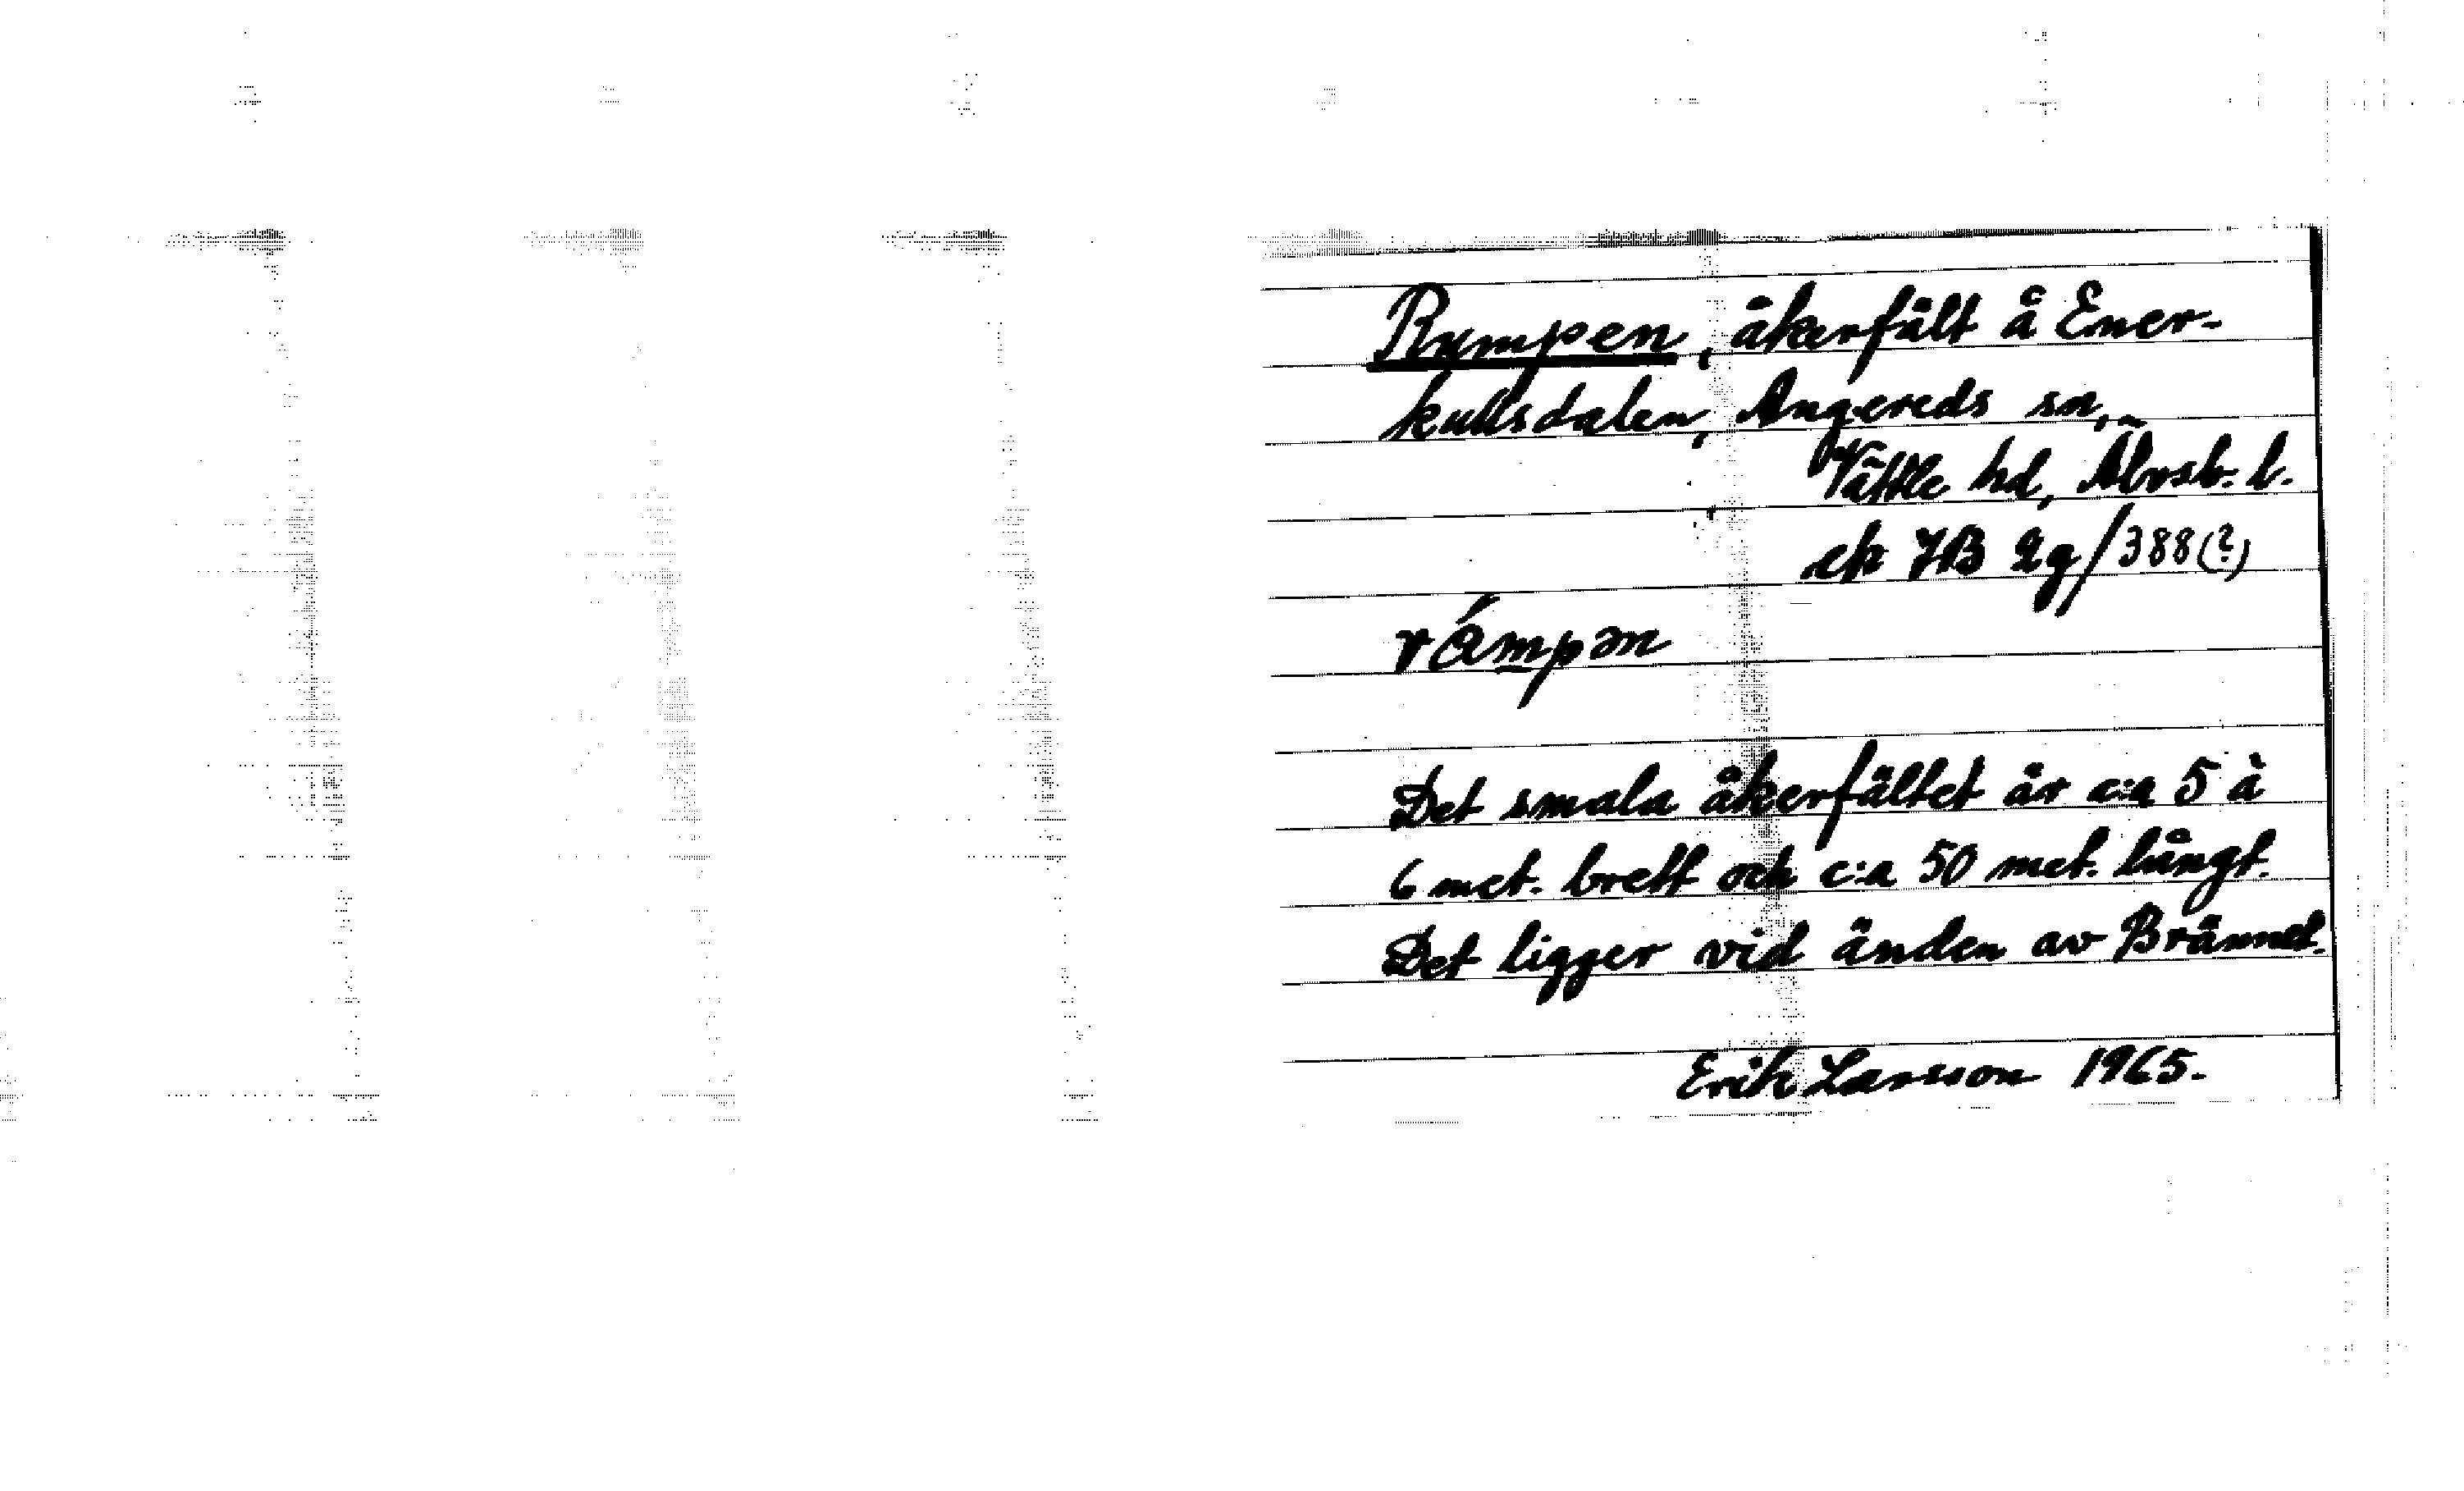 Rumpen, åkerfält å Ener-
kullsdalen, Angereds sn,
Vättle hd, Älvsb. l.
ek 7B 2g/388(?)
Det smala åkerfältet är c:a 5 à
6 met. brett och c:a 50 met. långt.
Det ligger vid änden av Brännet.
Erik Larsson 1965.